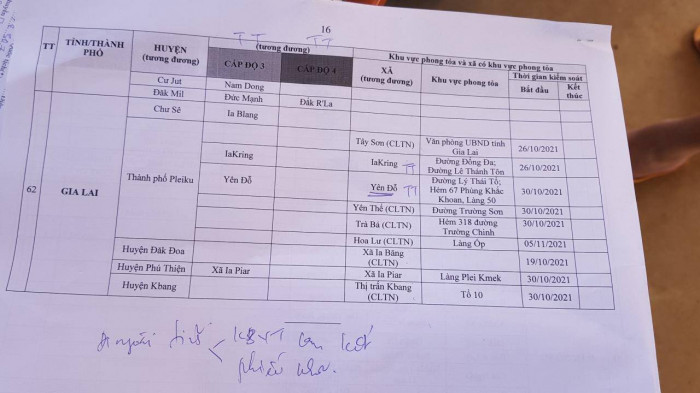 16
TT TỈNH/THÀNH PHỐ HUYỆN (tương đương) (tương đương) Khu vực phong tỏa và xã có khu vực phong tỏa
CẤP ĐỘ 3 CẤP ĐỘ 4 XÃ (tương đương) Khu vực phong tỏa Thời gian kiểm soát
Bắt đầu Kết thúc
Cư Jut Nam Dong
Đăk Mil Đức Mạnh Đăk R'La
62 GIA LAI
Chư Sê Ia Blang
Thành phố Pleiku
Tây Sơn (CLTN) Văn phòng UBND tỉnh Gia Lai 26/10/2021
IaKring IaKring Đường Đống Đa; Đường Lê Thánh Tôn 26/10/2021
Yên Đỗ Yên Đỗ Đường Lý Thái Tổ; Hẻm 67 Phùng Khắc Khoan, Làng 50 30/10/2021
Yên Thế (CLTN) Đường Trường Sơn 30/10/2021
Trà Bá (CLTN) Hẻm 318 đường Trường Chinh 30/10/2021
Hoa Lư (CLTN) Làng Ốp 05/11/2021
Huyện Đăk Đoa Xã Ia Băng (CLTN) 19/10/2021
Huyện Phú Thiện Xã Ia Piar Xã Ia Piar Làng Plei Kmek 30/10/2021
Huyện Kbang Thị trấn Kbang (CLTN) Tổ 10 30/10/2021